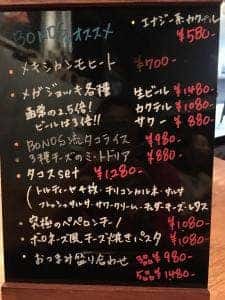 BONO'Sオススメ
・エナジー系カクテル
¥580-
・メキシカンモヒート ¥700-
・メガジョッキ各種
通常の2.5倍!
ビールは3倍!!
生ビール ¥1480-
カクテル ¥1080-
サワー ¥880-
・BONO'S流タコライス ¥980-
・3種チーズのミートドリア ¥880-
・タコスset ¥1280-
(トルティーヤ4枚・チリコンカルネ・サルサ
フレッシュサルサ・サワークリーム・チェダーチーズ・レタス
・究極のペペロンチーノ ¥1080-
・ボロネーズ風チーズ焼きパスタ ¥1080-
・おつまみ盛り合わせ 3品¥980-
5品¥1480-